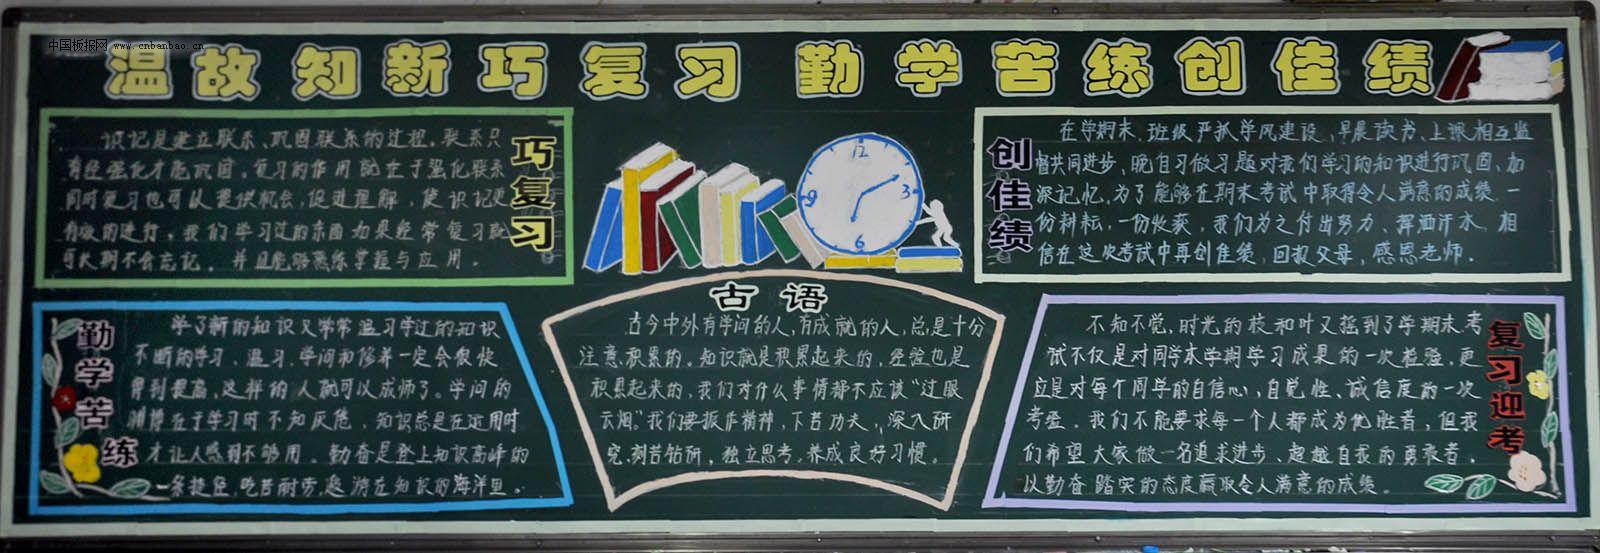 中国板报网 www.cnbanbao.cn
温故知新巧复习 勤学苦练创佳绩
巧复习
识记是建立联系、巩固联系的过程。联系只
有经强化才能巩固。复习的作用就在于强化联系
同时复习也可以提供机会,促进理解,使识记更
有效的进行。我们学习过的东西如果经常复习
可长期不会忘记。并且能够熟练掌握与应用。
创佳绩
在学期末,班级严抓学风建设,早晨读书、上课相互监
督共同进步、晚自习做习题对我们学习的知识进行巩固、加
深记忆,为了能够在期末考试中取得令人满意的成绩。一
份耕耘,一份收获,我们为之付出努力、挥洒汗水,相
信在这次考试中再创佳绩,回报父母,感恩老师。
勤学苦练
学了新的知识又常常温习学过的知识
不断的学习、温习,学问和修养一定会很快
得到提高,这样的人就可以成师了。学问的
渊博在于学习时不知厌倦,知识总是在运用时
才让人感到不够用。勤奋是登上知识高峰的
一条捷径,吃苦耐劳,遨游在知识的海洋里。
古语
古今中外有学问的人,有成就的人,总是十分
注意积累的。知识就是积累起来的,经验也是
积累起来的,我们对什么事情都不应该“过眼
云烟。”我们要振作精神,下苦功夫,深入研
究,刻苦钻研,独立思考,养成良好习惯。
复习迎考
不知不觉,时光的枝和叶又摇到了学期末考
试不仅是对同学末学期学习成果的一次检验,更
应是对每个同学的自信心,自觉性、诚信度的一次
考验。我们不能要求每一个人都成为优胜者,但我
们希望大家做一名追求进步、超越自我的勇敢者,
以勤奋踏实的态度赢取令人满意的成绩。